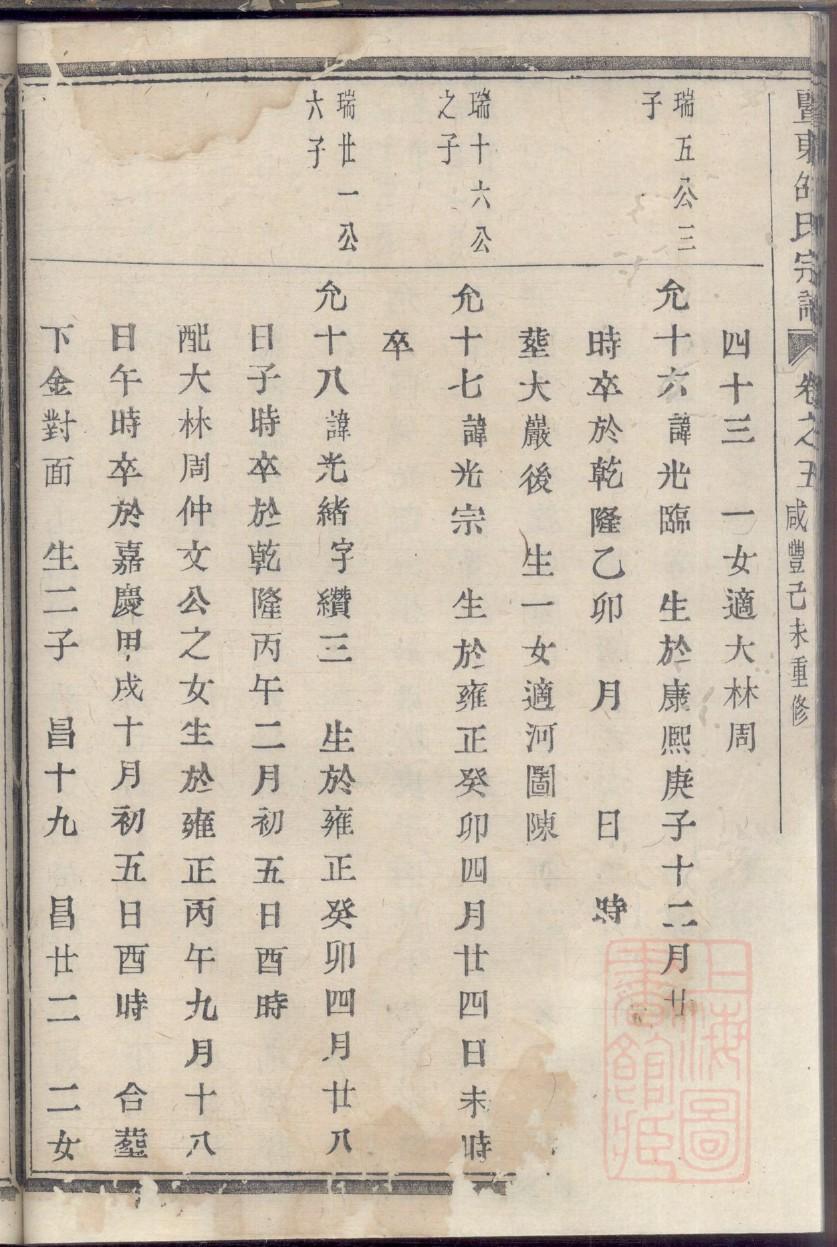 暨東邵氏宗譜 卷之五 咸豐己未重修
四十三 一女適大林周
瑞五公三子
允十六諱光臨 生於康熙庚子十二月廿
時卒於乾隆乙卯 月 日 時
塟大巖後 生一女適河圖陳
瑞十六公之子
允十七諱光宗 生於雍正癸卯四月廿四日未時
卒
瑞廿一公六子
允十八諱光緒字纘三 生於雍正癸卯四月廿八
日子時卒於乾隆丙午二月初五日酉時
配大林周仲文公之女生於雍正丙午九月十八
日午時卒於嘉慶甲戌十月初五日酉時 合塟
下金對面 生二子 昌十九 昌廿二 二女
上海圖書館藏